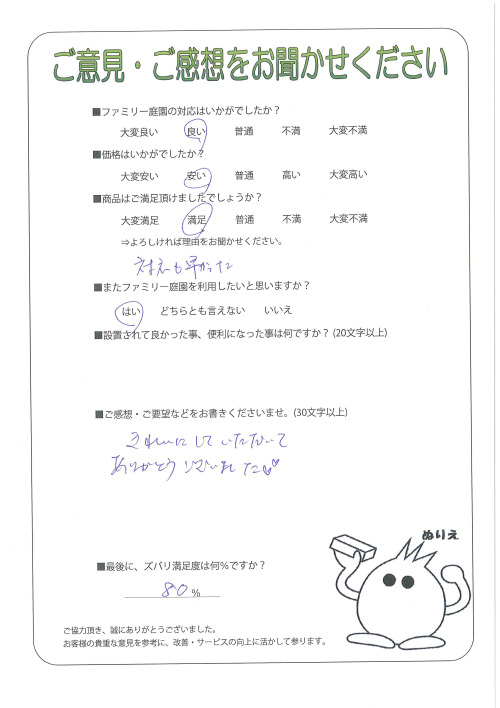 ご意見・ご感想をお聞かせください
■ファミリー庭園の対応はいかがでしたか？
大変良い 良い 普通 不満 大変不満
■価格はいかがでしたか？
大変安い 安い 普通 高い 大変高い
■商品はご満足頂けましたでしょうか？
大変満足 満足 普通 不満 大変不満
⇒よろしければ理由をお聞かせください。
対応も早かった
■またファミリー庭園を利用したいと思いますか？
はい どちらとも言えない いいえ
■設置されて良かった事、便利になった事は何ですか？(20文字以上)
■ご感想・ご要望などをお書きくださいませ。(30文字以上)
きれいにしていただいて
ありがとうございました
ぬりえ
■最後に、ズバリ満足度は何％ですか？
80％
ご協力頂き、誠にありがとうございました。
お客様の貴重な意見を参考に、改善・サービスの向上に活かして参ります。